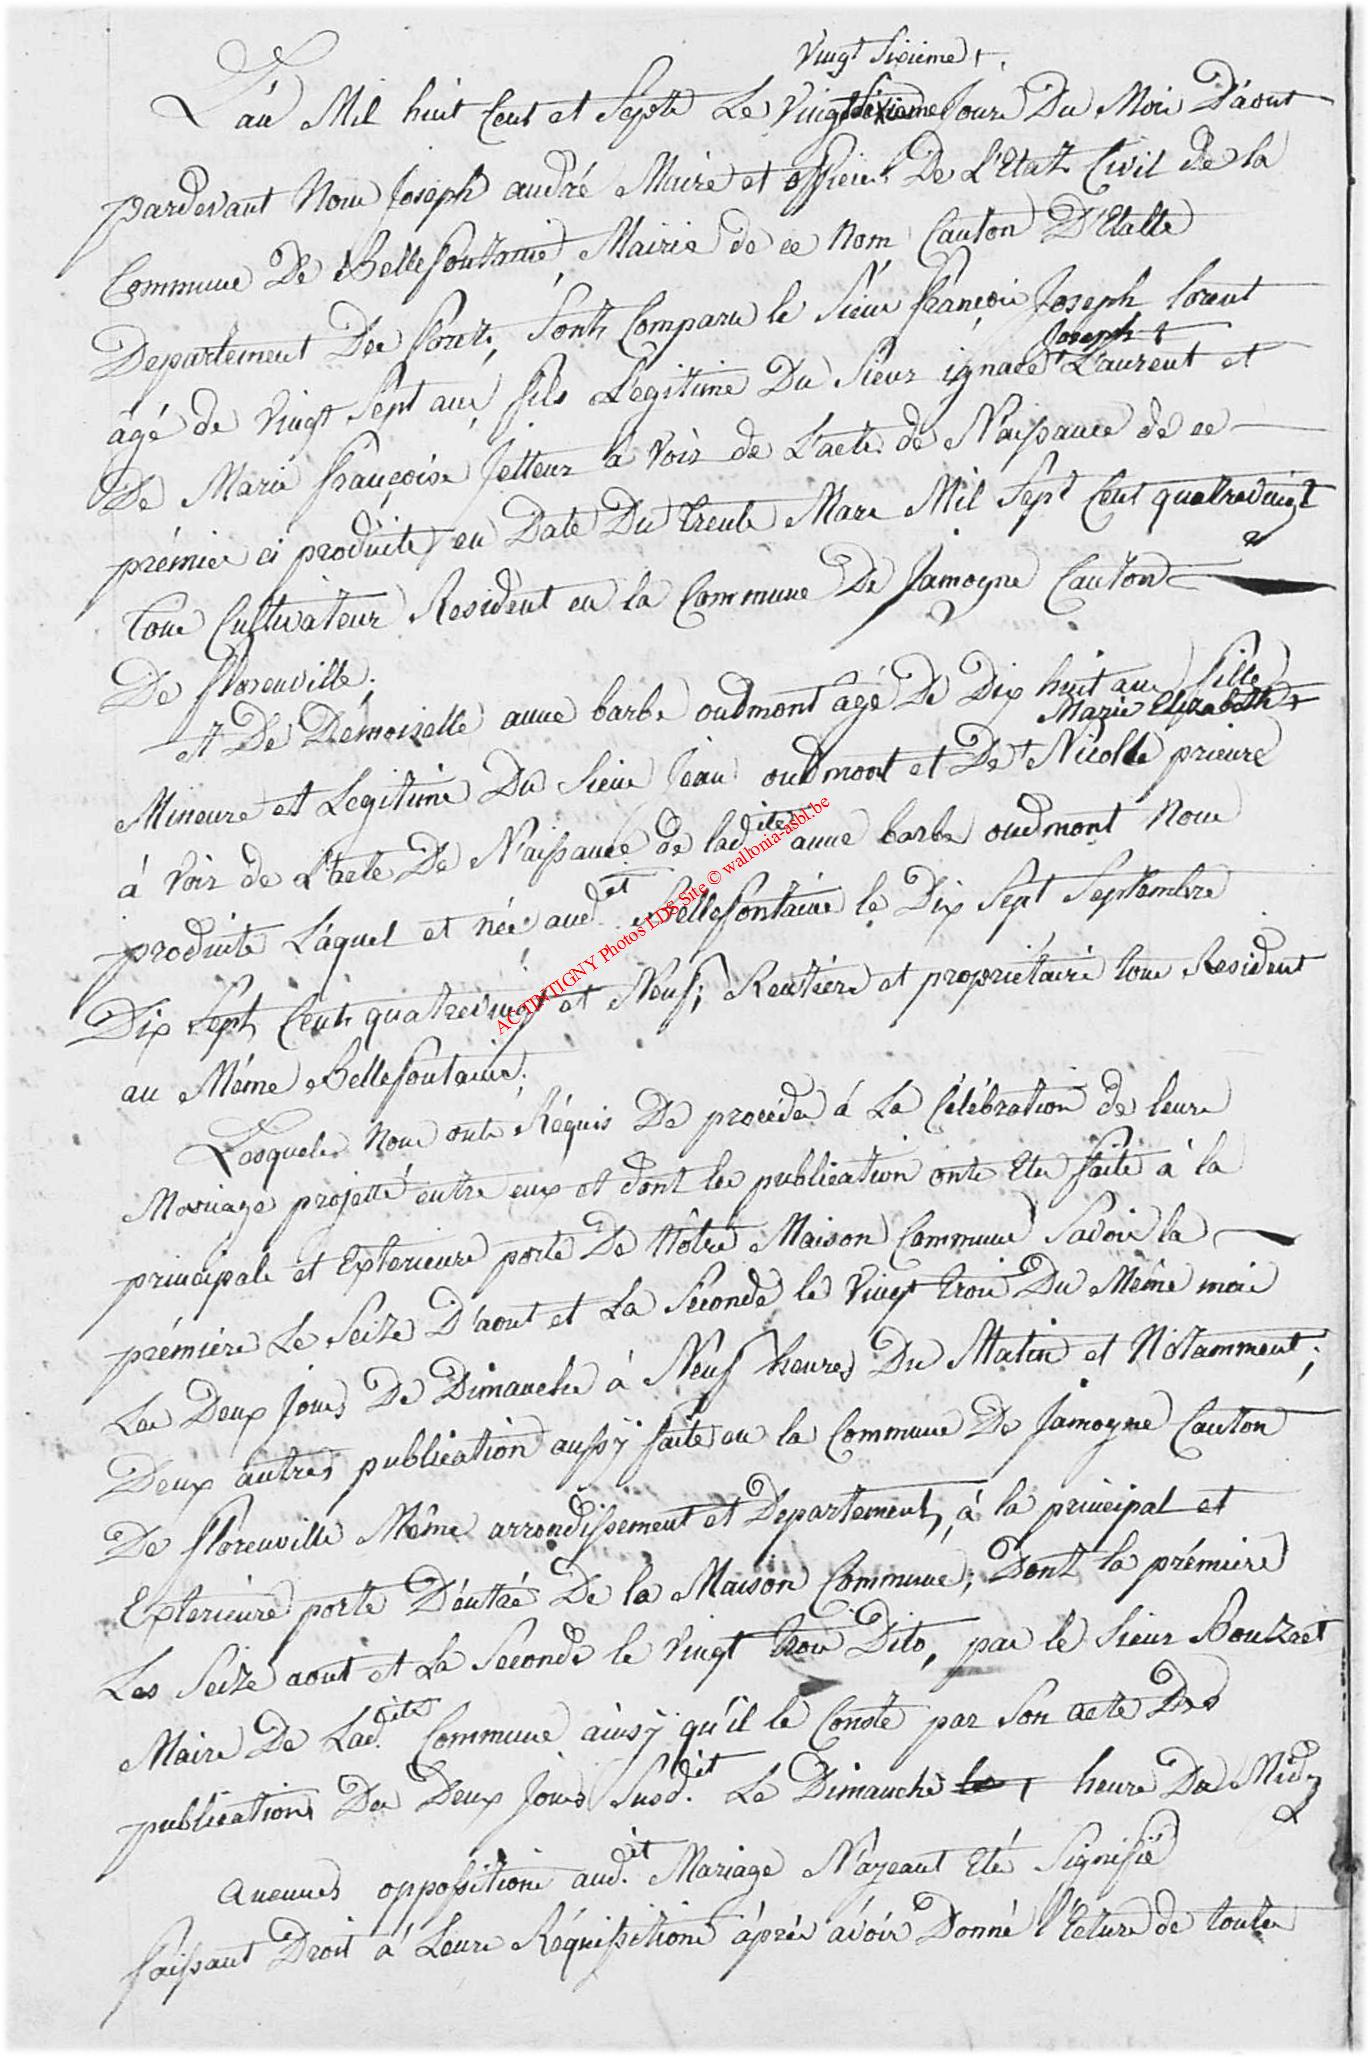 Vingt Sixieme +.
L'an Mil huit Cent et Septe Le Vingt Sixieme Jour Du Moi D'aout
pardevant Nou Joseph andré Maire et officier De L'Etat Civil de la
Commune De Bellefontaine, Mairie de ce Nom Canton D'Etalle
Departement Des foret, Sont Comparu le Sieur françoi Joseph lorent
Joseph +
âgé de Vingt Sept ans, fils Légitime Du Sieur ignace + L'aurent et
De Marie françoise Jetteur a Voir de L'acte de Naissance de ce
prémier ci produite en Date Du trente Mars Mil Sept Cent quatrevingt
tous Cultivateur Resident en la Commune De Jamoyne Canton
De florenville;
et De Demoiselle anne barbe oudmont agé De Dix huit ans fille
Marie Elizabeth +
Mineure et Legitime Du Sieur Jean oudmont et De + Nicolle prieure
à Voir de L'acte De Naissance de ladite anne barbe oudmont Nous
produite L'aquel et née audit Bellefontaine le Dix Sept Septembre
Dix Sept Cent quatrevingt et Neuf; Rentiére et propriétaire tous Resident
au Méme Bellefontaine;
Lesquels Nou onte Réquis De procéder á La Célébration de leure
Mariage projetté entre eux et dont les publication onte Eté faite à la
principale et Exterieure porte De Nôtre Maison Commune Savoir la
prémiére Le Seize D'aout et La Seconde le Vingt troi Du Méme moi
Les Deux Jours De Dimanche à Neuf heures Du Matin et Notamment;
Deux autres publication aussÿ faite en la Commune De Jamoyne Canton
De florenville Méme arrondissement et Departement, á la principal et
Exterieure porte D'éntrée De la Maison Commune; Dont la prémiére
Les Seize aout et La Seconde le Vingt troi Dito, par le Sieur Bouzret
Maire De Ladite Commune ainsÿ qu'il le Conste par Son acte Des
publications Des Deux Jours Susdit Le Dimanche les + heure De Midy
aucunes oppossitione audit Mariage N'ayeant Eté Signifié
faissant Droit á Leure Réquissitione áprés avóir Donné l'Ecture de toute
ACTINTIGNY Photos LDS Site © wallonia-asbl.be